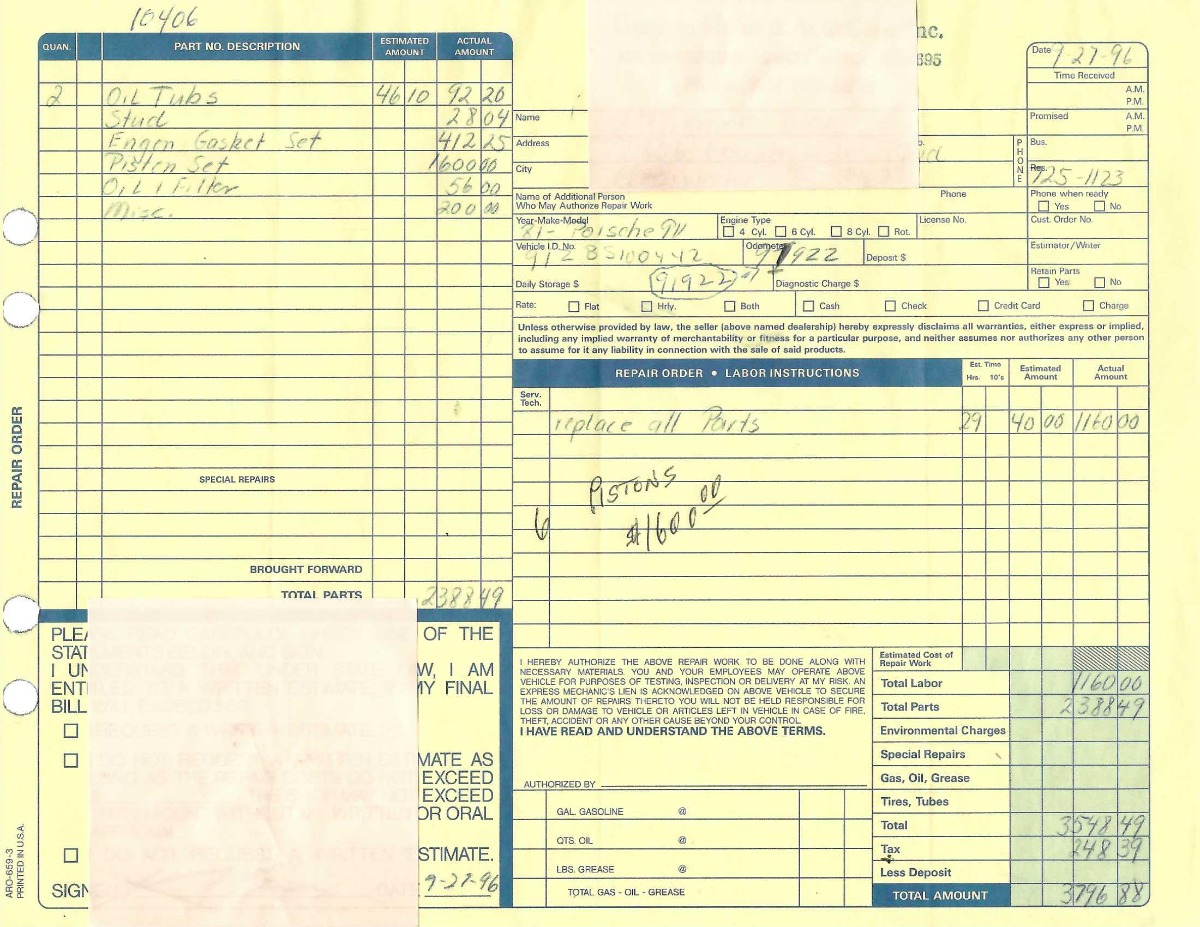 10406
QUAN. PART NO. DESCRIPTION ESTIMATED AMOUNT ACTUAL AMOUNT
2 Oil Tubs 46 10 92 20
Stud 28 04
Engen Gasket Set 412 25
Pisten Set 1600 00
Oil & Filter 56 00
Misc. 200 00
SPECIAL REPAIRS
BROUGHT FORWARD
TOTAL PARTS 2388 49
REPAIR ORDER
nc.
695
Date 9-27-96
Time Received
A.M.
P.M.
Promised A.M.
P.M.
Name
Address
City
PHONE
Bus.
Res. 725-1123
Name of Additional Person
Who May Authorize Repair Work
Phone
Phone when ready
Yes No
Year-Make-Model Porsche 911
Engine Type
4 Cyl. 6 Cyl. 8 Cyl. Rot.
License No.
Cust. Order No.
Vehicle I.D. No. 912 BS100442
Odometer 91922
Deposit $
Estimator/Writer
Daily Storage $ 91922
Diagnostic Charge $
Retain Parts
Yes No
Rate: Flat Hrly. Both Cash Check Credit Card Charge
Unless otherwise provided by law, the seller (above named dealership) hereby expressly disclaims all warranties, either express or implied,
including any implied warranty of merchantability or fitness for a particular purpose, and neither assumes nor authorizes any other person
to assume for it any liability in connection with the sale of said products.
REPAIR ORDER • LABOR INSTRUCTIONS Est. Time Hrs. 10's Estimated Amount Actual Amount
Serv. Tech.
replace all Parts 29 40 00 1160 00
PISTONS
6 $1600.00
PLEA OF THE
STAT
I UN W, I AM
ENTI MY FINAL
BILL
MATE AS
EXCEED
EXCEED
OR ORAL
STIMATE.
SIGN 9-27-96
ARO-659-3
PRINTED IN U.S.A.
I HEREBY AUTHORIZE THE ABOVE REPAIR WORK TO BE DONE ALONG WITH
NECESSARY MATERIALS. YOU AND YOUR EMPLOYEES MAY OPERATE ABOVE
VEHICLE FOR PURPOSES OF TESTING, INSPECTION OR DELIVERY AT MY RISK. AN
EXPRESS MECHANIC'S LIEN IS ACKNOWLEDGED ON ABOVE VEHICLE TO SECURE
THE AMOUNT OF REPAIRS THERETO YOU WILL NOT BE HELD RESPONSIBLE FOR
LOSS OR DAMAGE TO VEHICLE OR ARTICLES LEFT IN VEHICLE IN CASE OF FIRE,
THEFT, ACCIDENT OR ANY OTHER CAUSE BEYOND YOUR CONTROL.
I HAVE READ AND UNDERSTAND THE ABOVE TERMS.
AUTHORIZED BY
GAL. GASOLINE @
QTS. OIL @
LBS. GREASE @
TOTAL GAS - OIL - GREASE
Estimated Cost of Repair Work
Total Labor 1160 00
Total Parts 2388 49
Environmental Charges
Special Repairs
Gas, Oil, Grease
Tires, Tubes
Total 3548 49
Tax 248 39
Less Deposit
TOTAL AMOUNT 3796 88